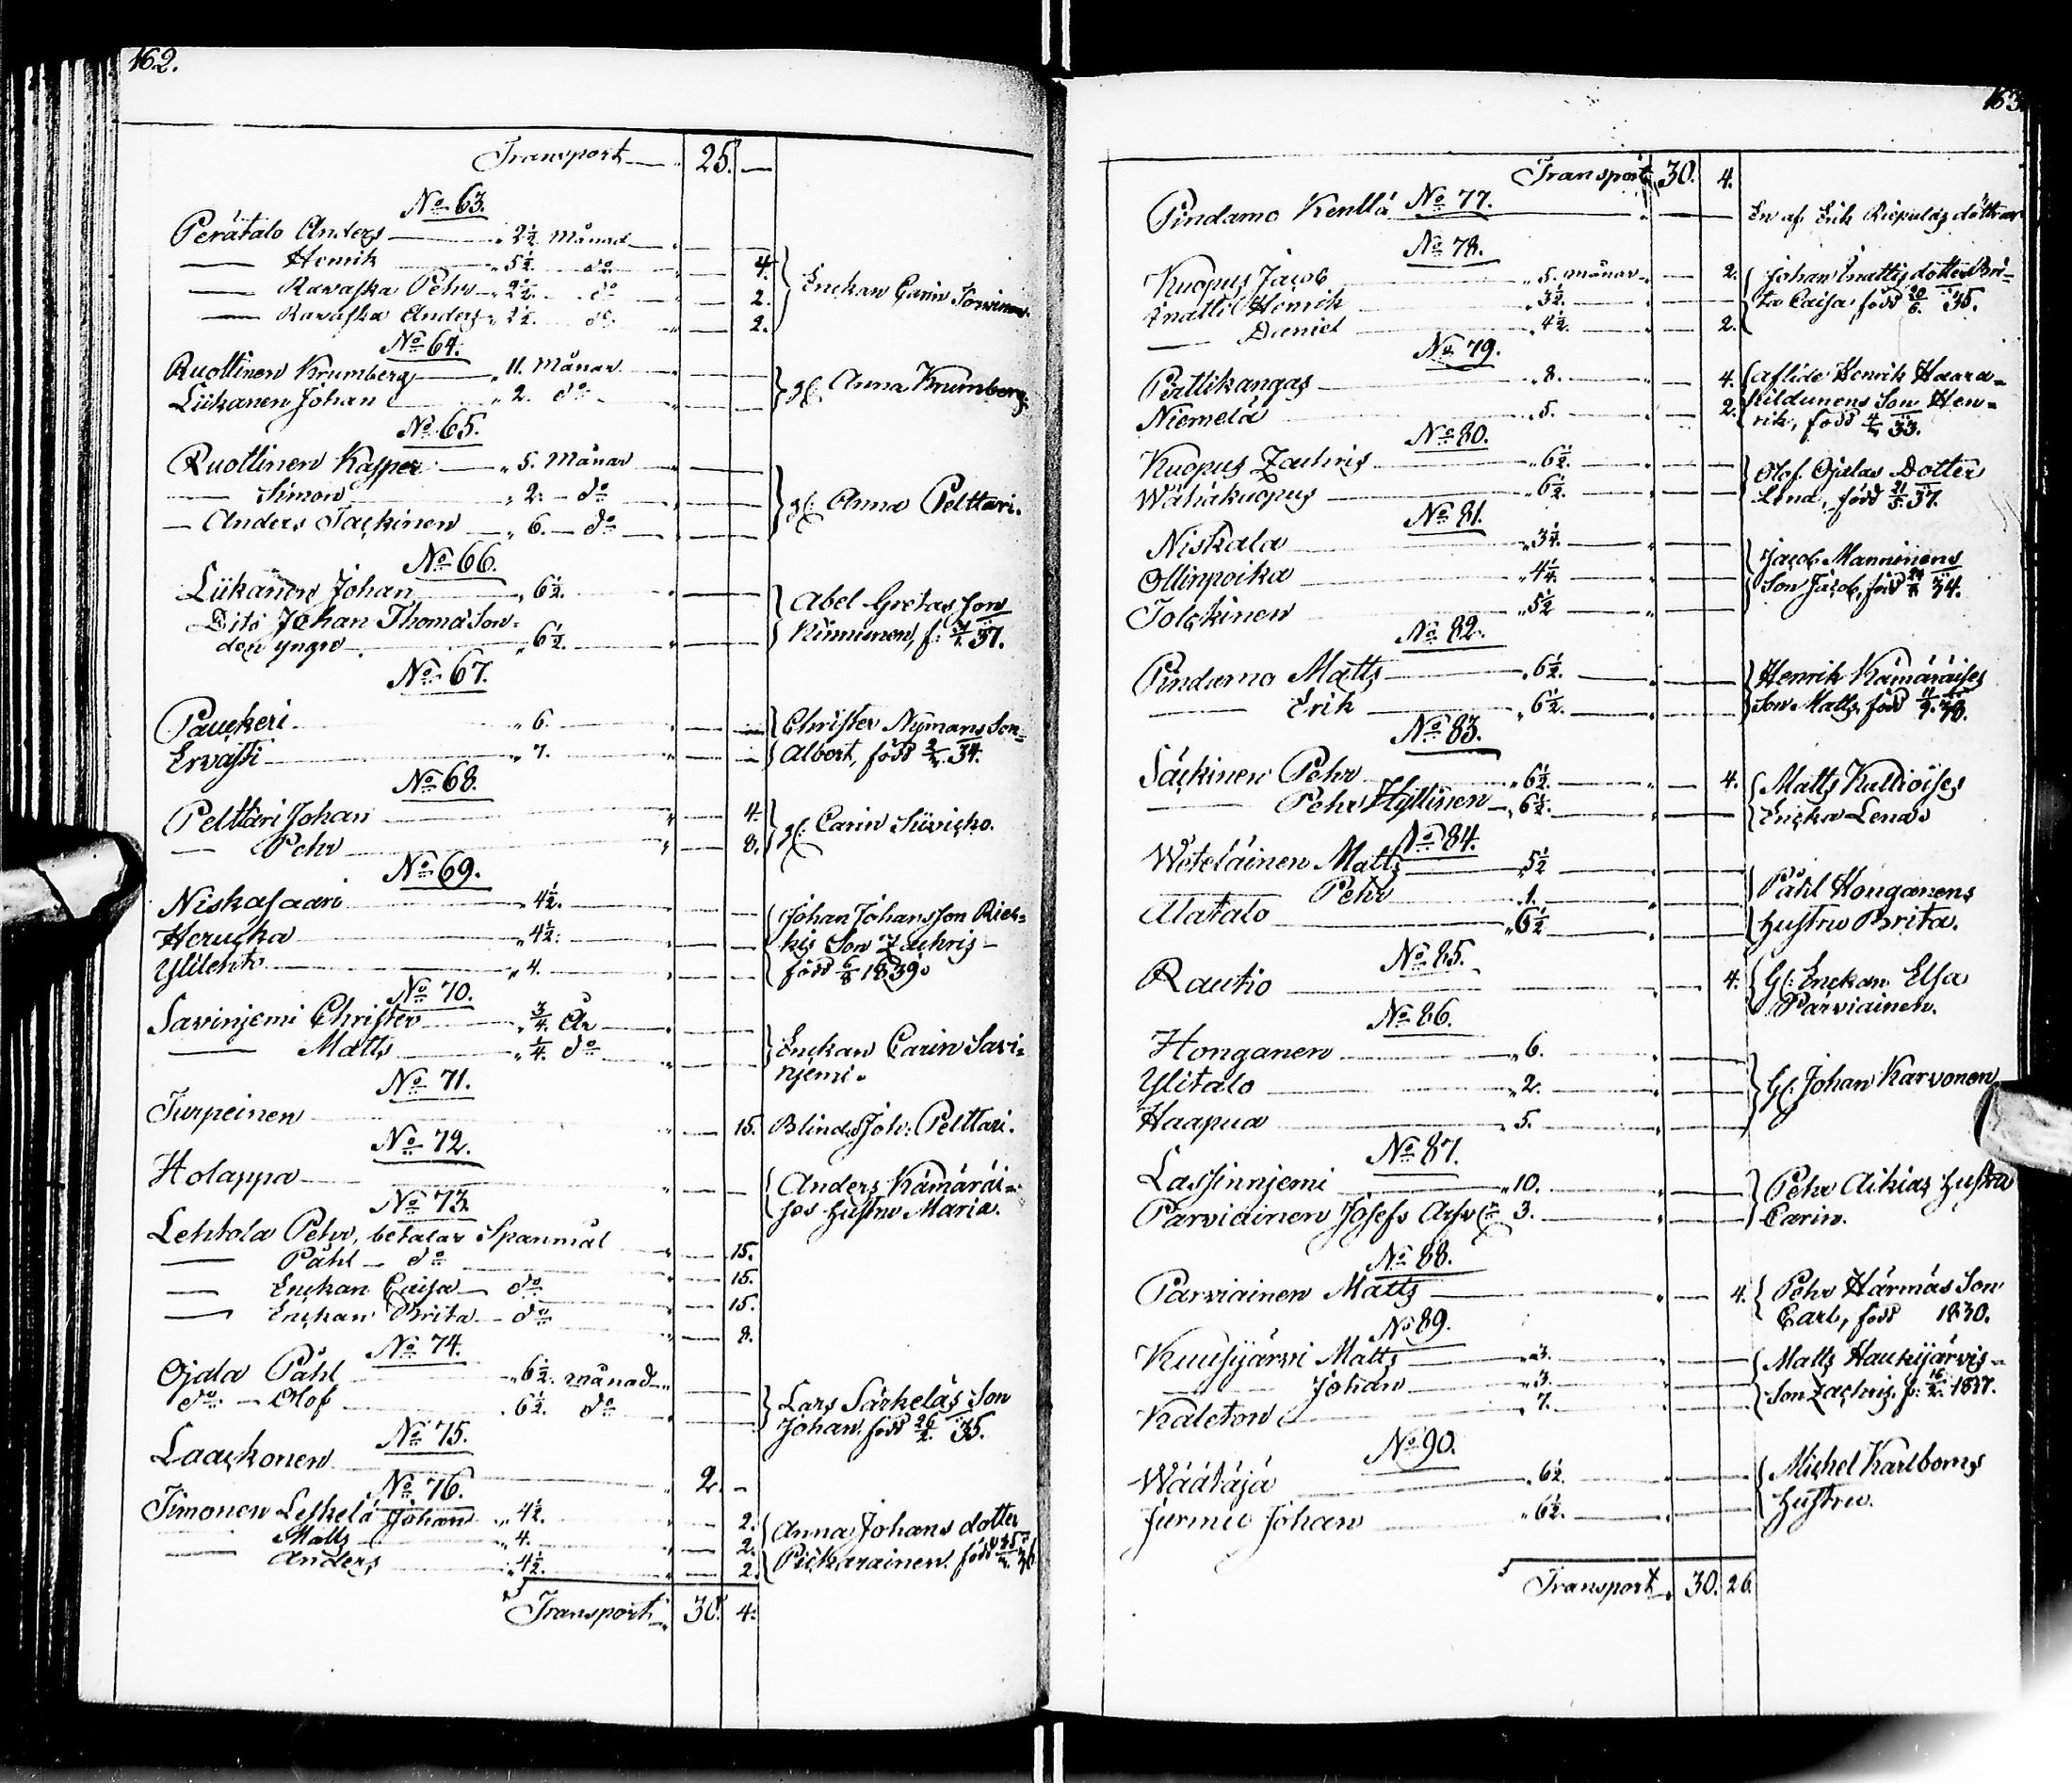 162.
Transport 25. —
No 63.
Perätalo Anders — 2½ Månad
— Henrik — 5½ do — 4. Enckan Carin
— Ravaska Pehr — 2½ do — 2.
— Ravaska Anders — 2½ do — 2.
No 64.
Ruottinen Krumberg — 11. Månar
Liikanen Johan — 2. do gl: Anna Krumberg
No 65.
Ruottinen Kasper — 5. Månar
— Simon — 2. do gl: Anna Pelttari.
— Anders Jackinen — 6. do
No 66.
Liikanen Johan — 6½. Abel Gretas Son
Dito Johan Thomasson
den yngre — 6½. Kinnunen, f: 37.
No 67.
Pauckeri — 6. Christer Nymans Son
Ervasti — 7. Albert, född 34.
No 68.
Pelttari Johan — 4.
— Pehr — 8. gl: Carin
No 69.
Niskasaari — 4½. Johan Johansson Riek=
Herucka — 4½. kis Son Zachris
Ylilehto — 4. född 6/8 1839.
No 70.
Savinjemi Christer — ¾. År
— Matts — ¼. do Enckan Carin Savi=
njemi.
No 71.
Turpeinen — 15. Blinde Joh: Pelttari.
No 72.
Holappa — Anders Kämäräi=
ses Hustru Maria.
No 73.
Lehtola Pehr, betalar Spanmål — 15.
— Påhl — do — 15.
— Enckan Caisa — do — 15.
— Enckan Brita — do — 8.
No 74.
Ojala Påhl — 6½. månad
do — Olof — 6½. do Lars Särkeläs Son
Johan, född 26/2. 35.
No 75.
Laackonen — 2. -
No 76.
Simonen Leskelä Johan — 4½. — 2. Anna Johans dotter
— Matts — 4. — 2. Pickarainen, född
— Anders — 4½. — 2.
Transport 30. 4.
163
Transport 30. 4.
No 77.
Pindamo Kenttä — En af Erik Riepulas döttrar
No 78.
Kuopus Jacob — 5. månar — 2. Johan Inattis dotter Bri=
Inatti Henrik — 3½. ta Caisa, född 20/6. 35.
— Daniel — 4½. — 2.
No 79.
Perttikangas — 8. — 4. aflidne Henrik Haara=
Niemelä — 5. — 2. Kildunens Son Hen=
rik, född 33.
No 80.
Kuopus Zachris — 6½. Olof Ojalas Dotter
Wähäkuopus — 6½. Lena, född 21/5. 37.
No 81.
Niskala — 3¼. Jacob Manninens
Ollinpoika — 4¼. Son Jacob, född 34.
Tolckinen — 5½
No 82.
Pindamo Matts — 6½. Henrik Kämäräises
— Erik — 6½. Son Matts, född
No 83.
Säckinen Pehr — 6½. — 4. Matts Kullioises
— Pehr Hyttinen — 6½. Encka Lena
No 84.
Weteläinen Matts — 5½
— Pehr — 1. Påhl Honganens
Alatalo — 6½ Hustru Brita.
No 85.
Rautio — 4. Gl: Enckan Elsa
Parviainen.
No 86.
Honganen — 6.
Ylitalo — 2. Gl: Johan Karvonen
Haapua — 5.
No 87.
Lassinnjemi — 10. Pehr Aikias Hustru
Parviainen Josefs Arfv — 3. Carin.
No 88.
Parviainen Matts — 4. Pehr Härmäs Son
Carl, född 1830.
No 89.
Kuusijärvi Matts — 3. Matts Haukijärvis
— Johan — 3. Son Zachris, f: 16/2. 1837.
Kaleton — 7.
No 90.
Wäätäjä — 6½. Michel Karlboms
Jurmu Johan — 6½. Hustru.
Transport 30. 26